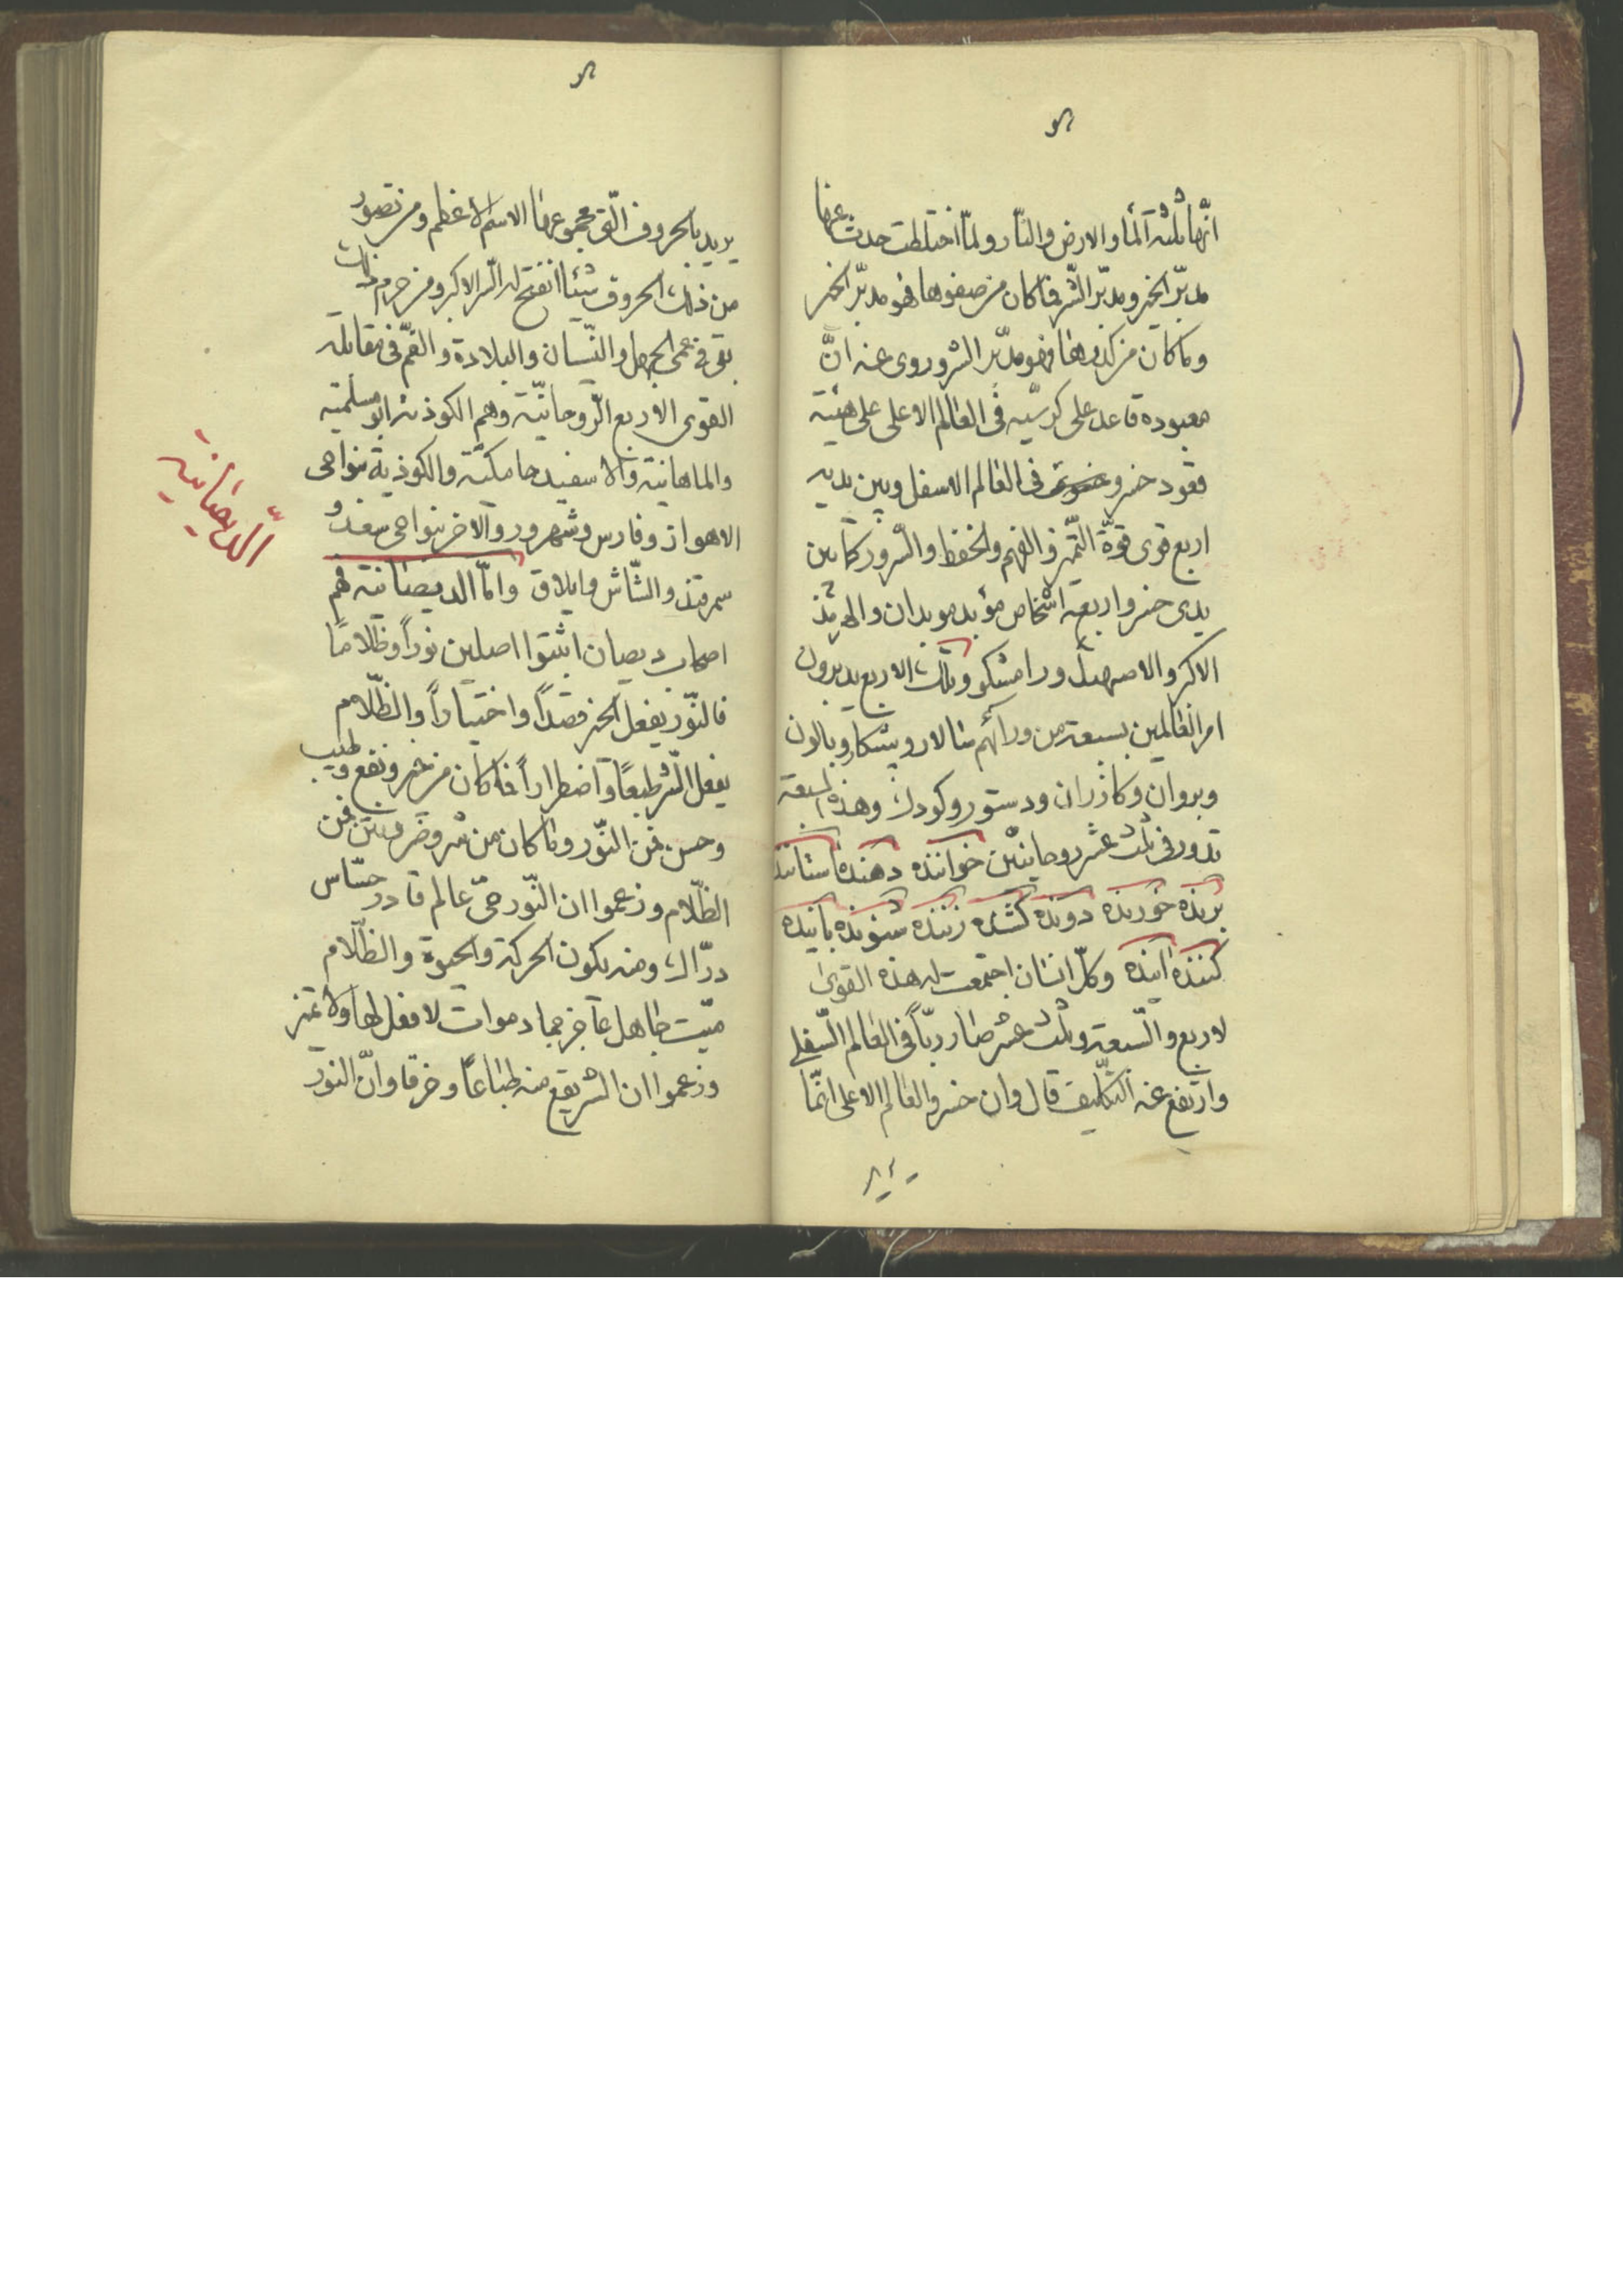 انّها ثلثة الماء والارض والنّار ولمّا اختلطت حدث عنها
مدبّر الخير ومدبّر الشّر فما كان من صفوها فهو مدبّر الخير
وما كان من كدرها فهو مدبّر الشر وروى عنه انّ
معبوده قاعد على كرسّيه فى العالم الاعلى على هيئة
قعود خسرو فى العالم الاسفل وبين يديه
اربع قوى قوّة التّميز والفهم والحفظ والسّرور كما بين
يدى خسرو اربعة اشخاص موبد موبدان والهربذ
الاكبر والاصبهبد ورامشكر وتلك الاربع يدبرون
امر العالمين بسبعة من ورائهم سالار وپیشكار وبالون
وبروان وكاذران ودستور وكودك وهذه السبعة
تدور فى ثلث عشر روحانيّين خواننده دهنده ستاننده
برنده خورنده دونده كشنده زننده شنونده
كننده آینده وكلّ انسان اجتمعت له هذه القوى
لاربع والسّبعة وثلث عشر صار ربّاً فى العالم السّفلى
وارتفع عنه التكليف قال وان خسرو العالم الاعلى انّما
يدبر بالحروف الّتى مجموعها الاسم الاعظم ومن تصور
من ذلك الحروف شيئا انفتح له السّر الاكبر ومن حرم ذلك
بقى فى عمى الجهل والنّسيان والبلادة والغمّ فى مقابلة
القوى الاربع الرّوحانيّة وهم الكوذية وابو مسلمية
والماهانية والاسفيد جامكيّة والكوذية بنواحى
الاهواز وفارس وشهرزور والاخر بنواحى سغد و
سمرقند والشّاش وايلاق وامّا الديصانية فهم
اصحاب ديصان اثبتوا اصلين نوراً وظلاماً
فالنّور يفعل الخير قصداً واختياراً والظّلام
يفعل الشّر طبعاً واضطراراً فما كان من خير ونفع وطيب
وحسن فمن النّور وما كان من شر وضرّ ونتن فمن
الظّلام وزعموا ان النّور حىّ عالم قادر حسّاس
درّاك ومنه يكون الحركة والحيوة والظّلام
ميّت جاهل عاجز جماد موات لا فعل لها ولا تميز
وزعموا ان الشر يقع منه طباعاً وخرقا وانّ النور
الدّيصانيه